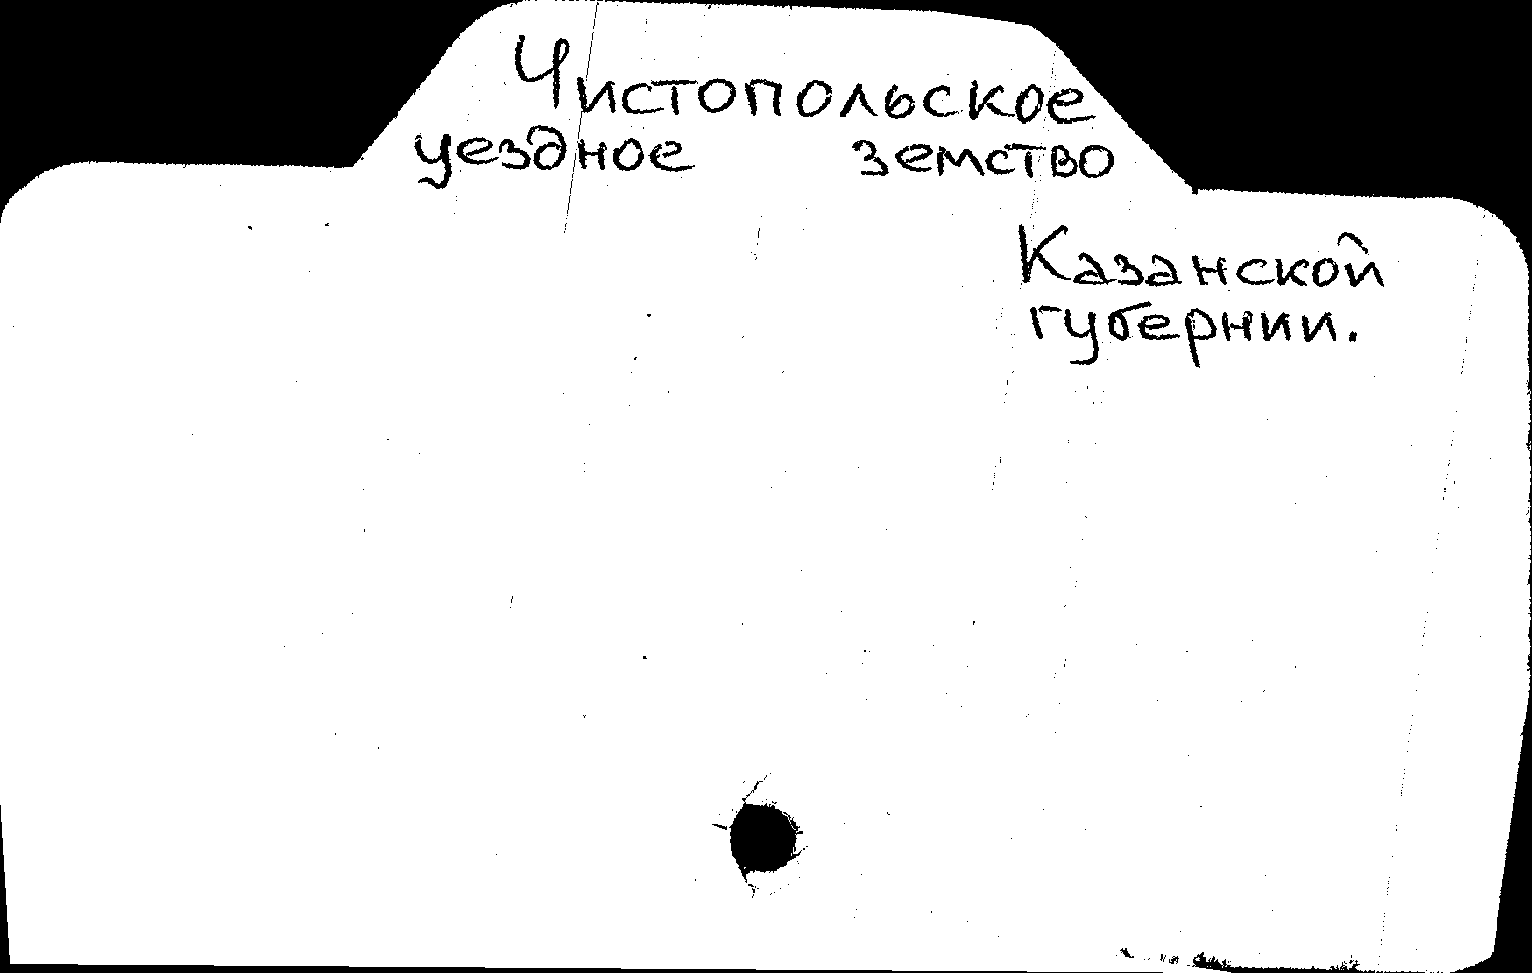 Чистопольское
уездное земство
Казанской
губернии.